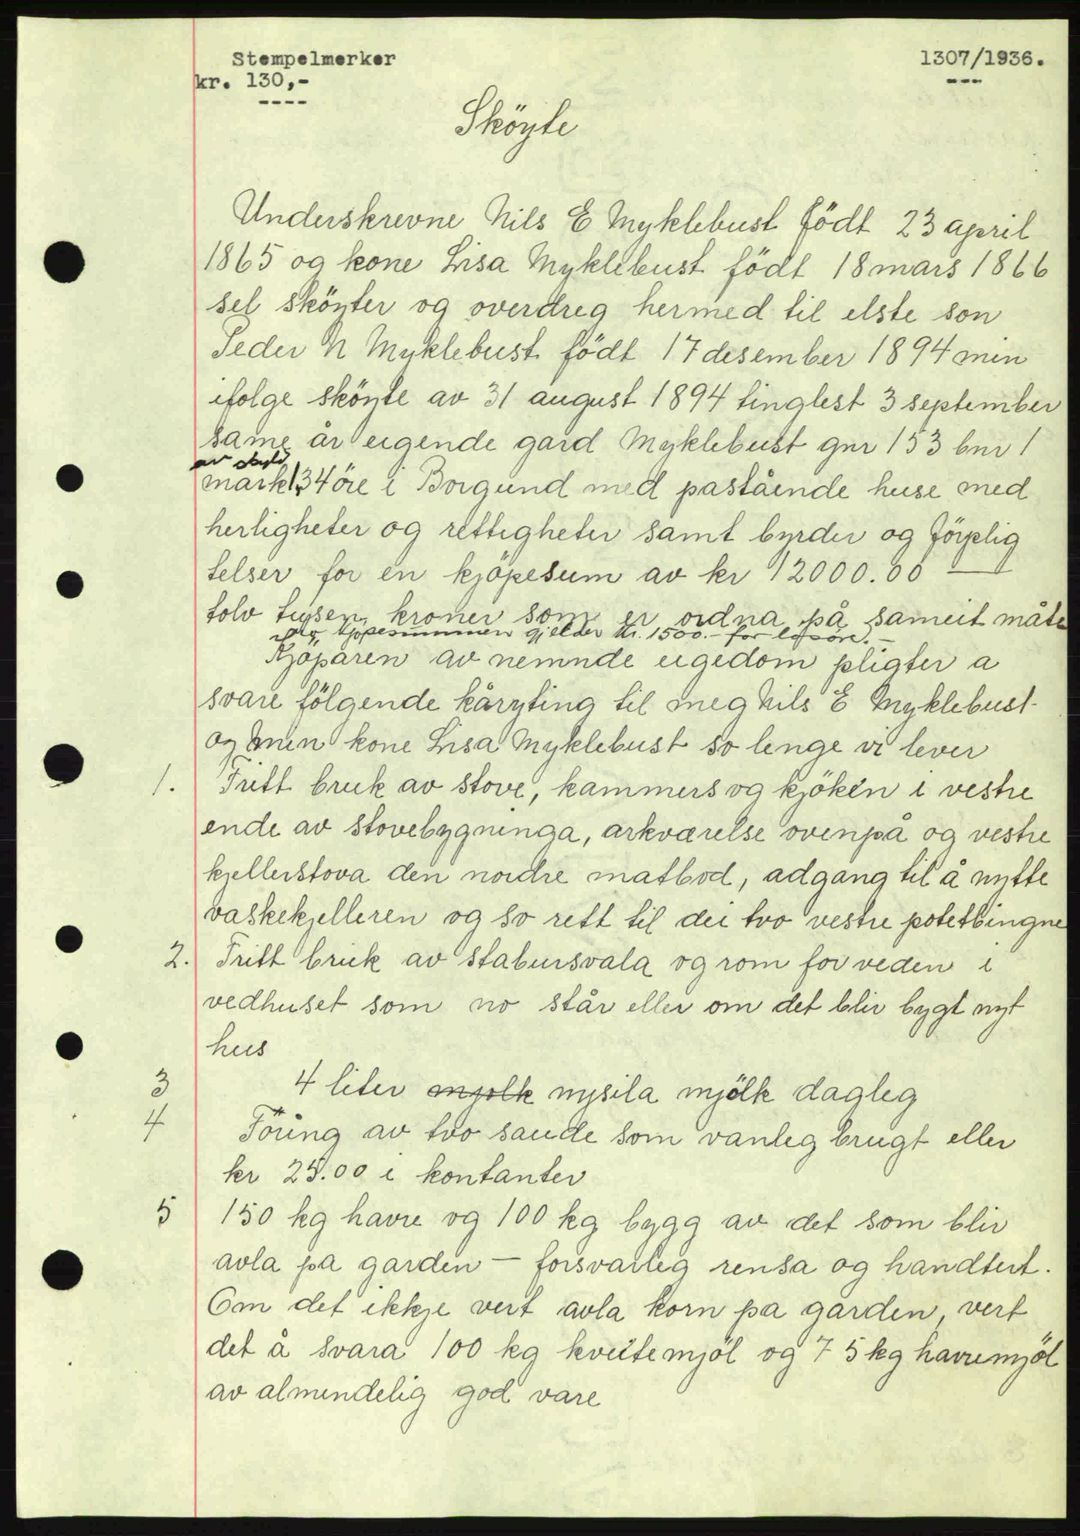 Stempelmerker
kr. 130,-
1307/1936.
Sköyte
Underskrevne Nils E Myklebust födt 23 april
1865 og kone Lisa Myklebust födt 18 mars 1866
sel sköyter og overdreg hermed til elste son
Peder N Myklebust födt 17 desember 1894 min
ifolge sköyte av 31 august 1894 tinglest 3 september
same år eigende gard Myklebust gnr 153 bnr 1
av skyld
mark 1,34 öre i Borgund med påstående huse med
herligheter og rettigheter samt byrder og förplig
telser for en kjöpesum av kr 12000.00 —
tolv tusen kroner som er ordna på sameit måte
Av kjøpesummen gjelder kr. 1500.- for løsøre. -
Kjöparen av nemnde eigedom pligter a
svare fölgende kåryting til meg Nils E Myklebust
og min kone Lisa Myklebust so lenge vi lever
1. Fritt bruk av stove, kammers og kjöken i vestre
ende av stovebygninga, arkværelse ovenpå og vestre
kjellerstova den nordre matbod, adgang til å nytte
vaskekjelleren og so rett til dei tvo vestre potetbingne
2. Fritt bruk av stabursvala og rom for veden i
vedhuset som no står eller om det blir bygt nyt
hus
3 4 liter mjolk nysila mjölk dagleg
4 Föring av tvo saude som vanleg brugt eller
kr 25.00 i kontanter
5 150 kg havre og 100 kg bygg av det som blir
avla pa garden — forsvarleg rensa og handtert.
Om det ikkje vert avla korn pa garden, vert
det å svara 100 kg kveitemjöl og 75 kg havremjöl
av almindelig god vare